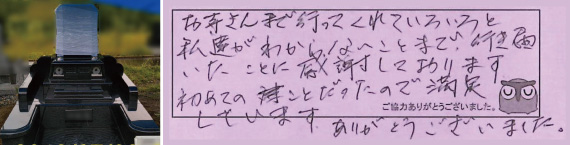 お寺さんまで行ってくれていろいろと
私達がわからないことまで、行き届
いたことに感謝しております
初めての事ことだったので満足
ご協力ありがとうございました。
しています。ありがとうございました。